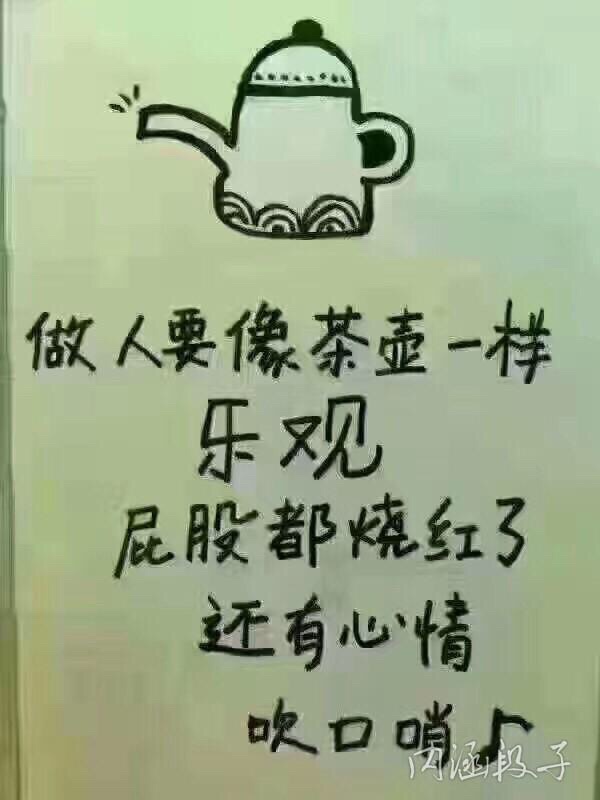 做人要像茶壶一样
乐观
屁股都烧红了
还有心情
吹口哨♪
内涵段子